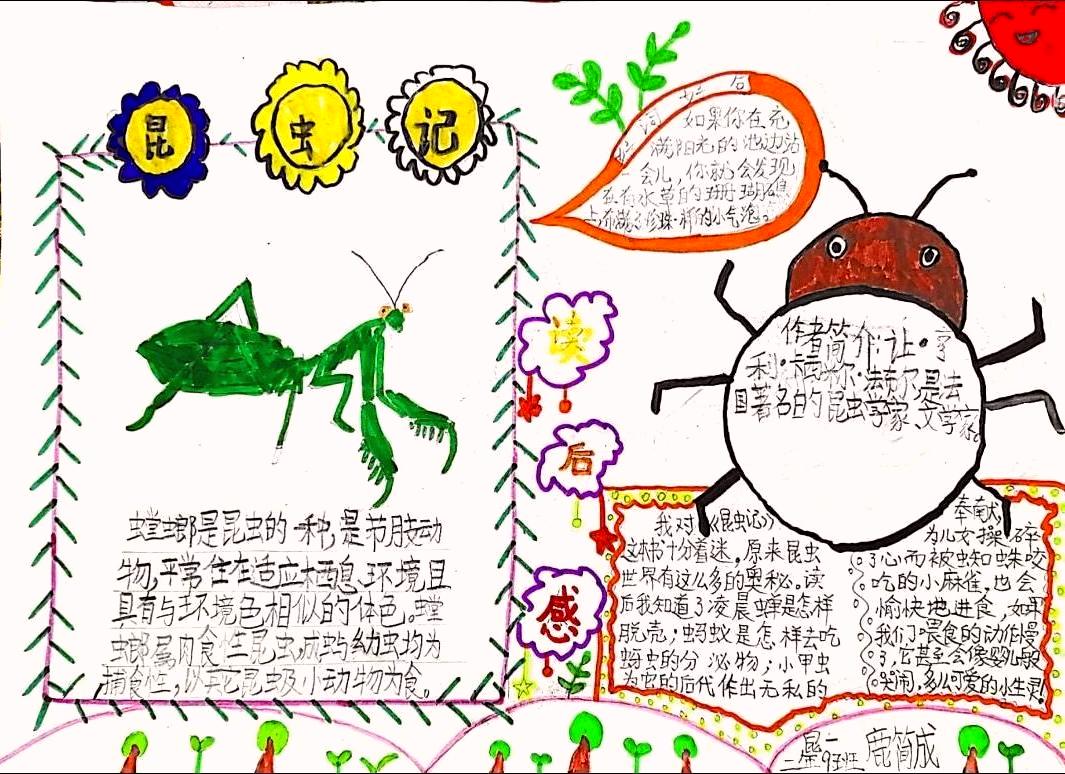 昆虫记
螳螂是昆虫的一种,是节肢动
物,平常住在适应栖息、环境且
具有与环境色相似的体色。螳
螂属肉食性昆虫,成虫与幼虫均为
捕食性,以其它昆虫及小动物为食。
好词好句
如果你在充
满阳光的池边站
一会儿,你就会发现
在有水草的珊瑚礁
上布满了珍珠一样的小气泡。
读
后
感
作者简介:让·亨
利·卡西米尔·法布尔是法
国著名的昆虫学家、文学家。
我对《昆虫记》
这本书十分着迷,原来昆虫
世界有这么多的奥秘。读
后我知道了凌晨蝉是怎样
脱壳;蚂蚁是怎样去吃
蚜虫的分泌物;小甲虫
为它的后代作出无私的
奉献
为儿女操碎
了心而被蜘蛛咬
吃的小麻雀,也会
愉快地进食,如果
我们喂食的动作慢
了,它甚至会像婴儿般
哭闹,多么可爱的小生灵!
鹿简成